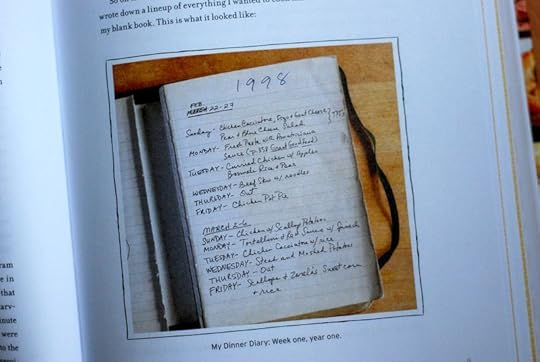 So on
wrote down a lineup of everything I wanted to cook
my blank book. This is what it looked like:
1998
FEB.
MARCH 22-27
Sunday - Chicken Cacciatore, Egg + Goat Cheese
Pear + Blue Cheese Salad
MONDAY - Fresh Pasta w/ Amatriciana
Sauce (p. 151 Great Good Food)
TUESDAY - Curried Chicken w/ Apples
Basmati Rice + Peas
WEDNESDAY - Beef Stew w/ noodles
THURSDAY - Out
FRIDAY - Chicken Pot Pie
MARCH 2-6
SUNDAY - Chicken w/ Scallop Potatoes
MONDAY - Tortellini + Red Sauce w/ Spinach
TUESDAY - Chicken Cacciatore w/ rice
WEDNESDAY - Steak and Mashed Potatoes
THURSDAY - Out
FRIDAY - Scallops + Sweet corn
+ rice
My Dinner Diary: Week one, year one.
ram
e in
that
arv-
inute
were
to the